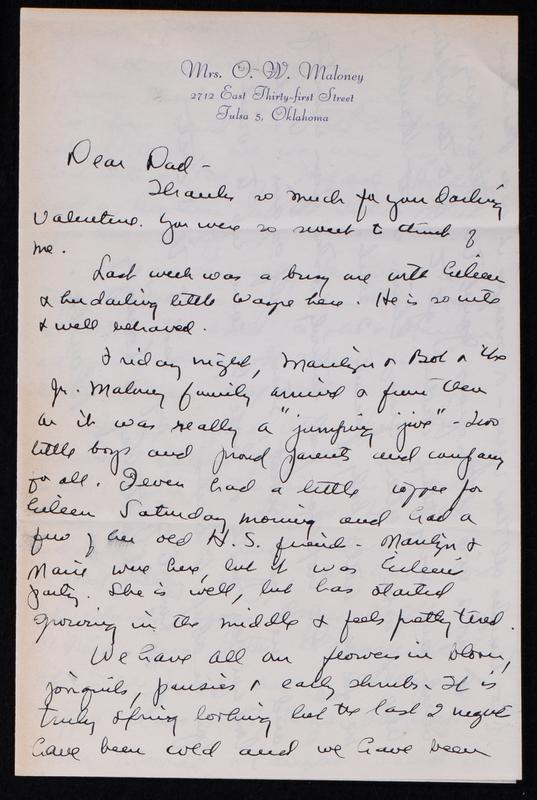 Mrs. O. W. Maloney
2712 East Thirty-first Street
Tulsa 5, Oklahoma
Dear Dad -
Thanks so much for your darling
Valentine. You were so sweet to think of
me.
Last week was a busy one with Eileen
& her darling little Wayne here. He is so cute
& well behaved.
Friday night, Marilyn & Bob & the
Jr. Maloney family arrived & from then
on it was really a "jumping jive" - two
little boys and proud parents and company
for all. I even had a little coffee for
Eileen Saturday morning and had a
few of her old H.S. friends - Marilyn &
Marie were here, but it was Eileen's
party. She is well, but has started
growing in the middle & feels pretty tired.
We have all our flowers in bloom,
jonquils, pansies & early shrubs. It is
truly spring looking but the last 2 nights
have been cold and we have been